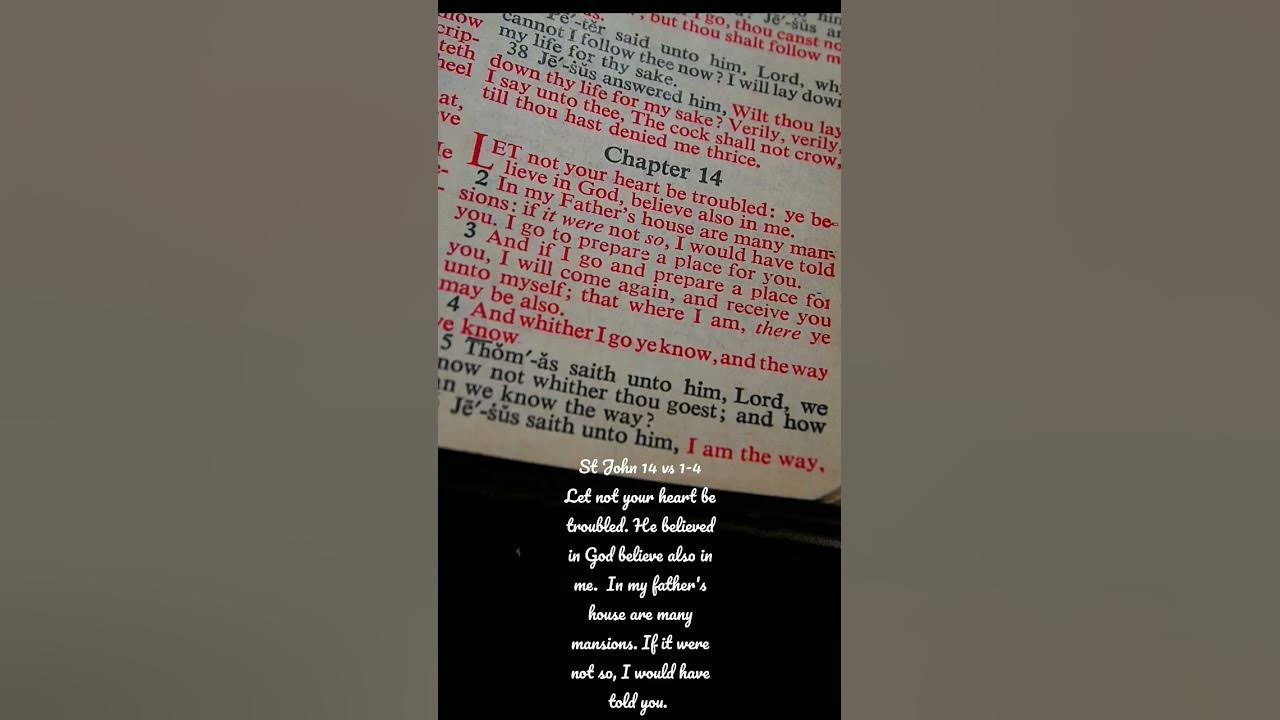 now
crip-
teth
heel
at,
eve
I go, thou canst no
, but thou shalt follow m
Pē′-tẽr said unto him, Lord, why
cannot I follow thee now? I will lay down
my life for thy sake.
38 Jē′-ṡŭs answered him, Wilt thou lay
down thy life for my sake? Verily, verily,
I say unto thee, The cock shall not crow,
till thou hast denied me thrice.
Chapter 14
LET not your heart be troubled: ye be-
lieve in God, believe also in me.
2 In my Father's house are many man-
sions: if it were not so, I would have told
you. I go to prepare a place for you.
3 And if I go and prepare a place for
you, I will come again, and receive you
unto myself; that where I am, there ye
may be also.
4 And whither I go ye know, and the way
ye know
5 Thŏm′-ăs saith unto him, Lord, we
now not whither thou goest; and how
an we know the way?
Jē′-ṡŭs saith unto him, I am the way,
St John 14 vs 1-4
Let not your heart be
troubled. He believed
in God believe also in
me. In my father's
house are many
mansions. If it were
not so, I would have
told you.